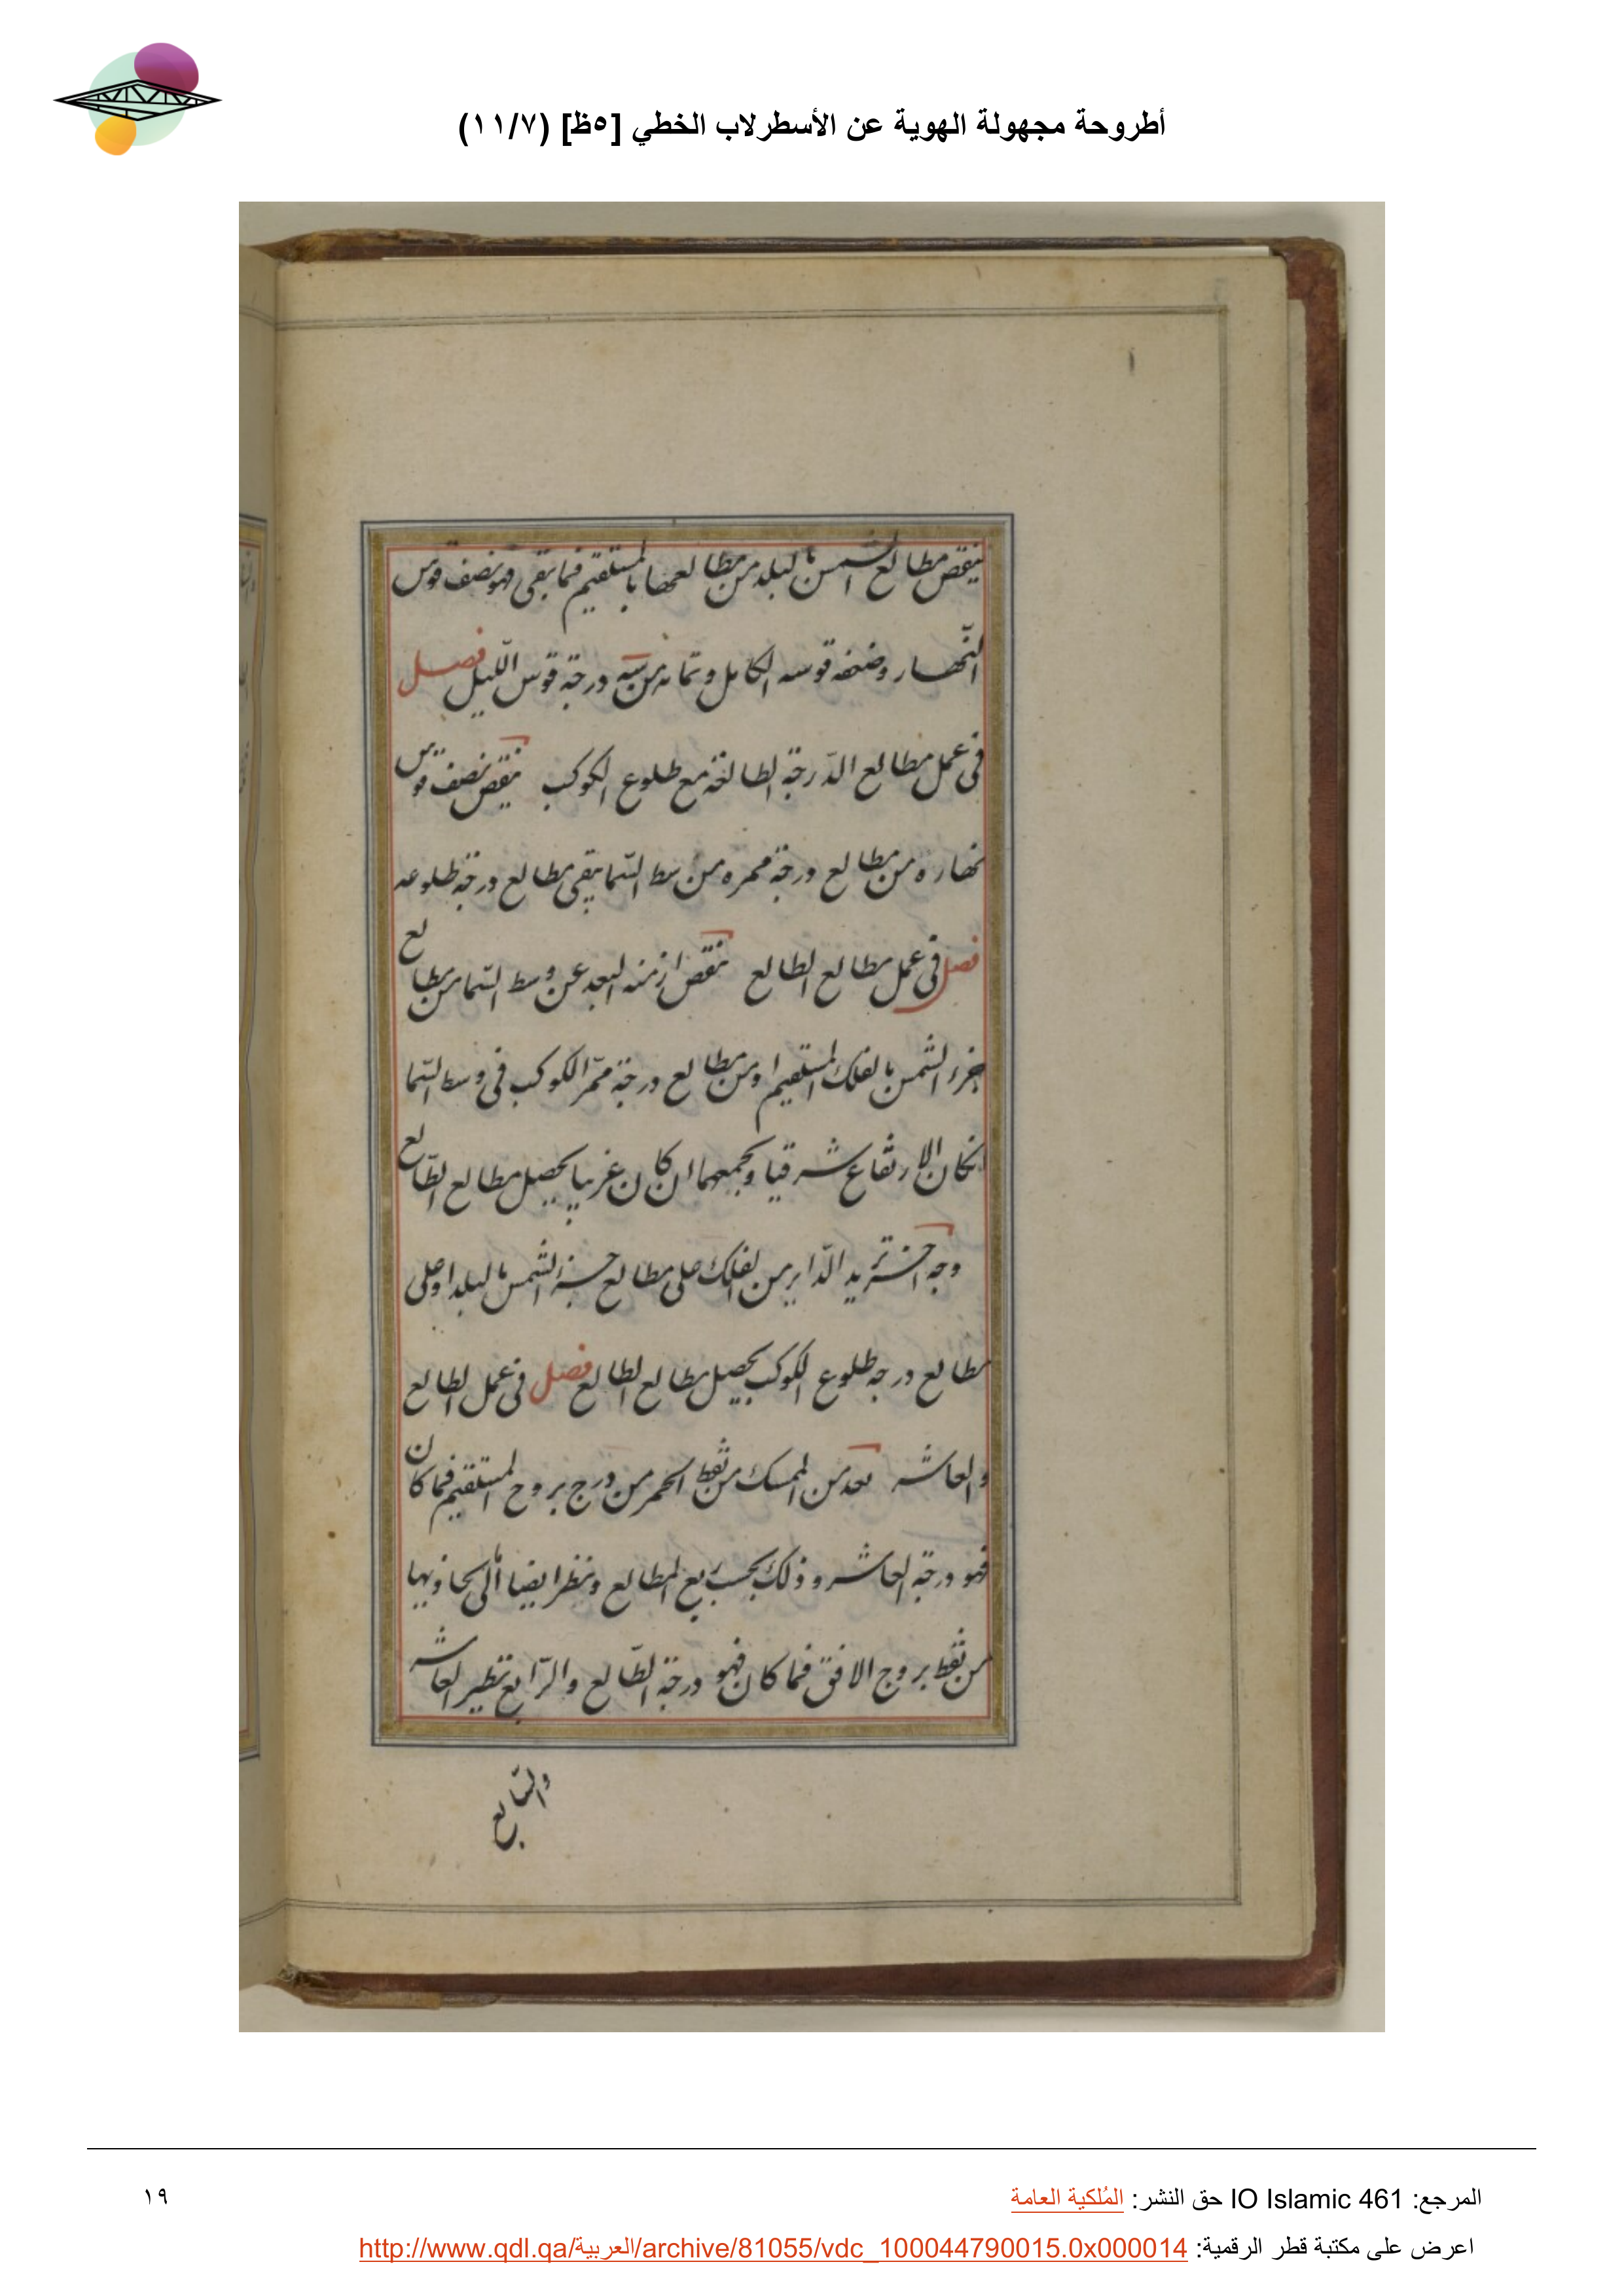 أطروحة مجهولة الهوية عن الأسطرلاب الخطي [٥ظ] (١١/٧)
ينقص مطالع الشمس بالبلد من مطالعها بالمستقيم فما بقى فهو نصف قوس
النّهار وضعفه قوسه الكامل وتمامه من درجة قوس اللّيل فصل
فى عمل مطالع الدّرجة الطالعة مع طلوع الكوكب ينقص نصف قوس
نهاره من مطالع درجة ممره من وسط السّما يبقى مطالع درجة طلوعه
فصل فى عمل مطالع الطالع ننقص ازمنه البعد عن وسط السّما من مطالع
جزء الشمس بالفلك المستقيم او من مطالع درجة ممرّ الكوكب فى وسط السّما
انكان الارتفاع شرقيا ونجمعهما ان كان غربيا يحصل مطالع الطّالع
وجه اخر نزيد الدّاير من الفلك على مطالع جزء الشمس بالبلد او على
مطالع درجه طلوع الكوكب يحصل مطالع الطالع فصل فى عمل الطالع
والعاشر نعد من الممسك من نقط الحمر من درج بروج المستقيم فما كان
فهو درجة العاشر وذلك بحسب ربع المطالع وننظر ايضا الى
من نقط بروج الافق فما كان فهو درجة الطّالع والرّابع نظير العاشر
والسّابع
المرجع: IO Islamic 461 حق النشر: المُلكية العامة
١٩
اعرض على مكتبة قطر الرقمية: http://www.qdl.qa/العربية/archive/81055/vdc_100044790015.0x000014